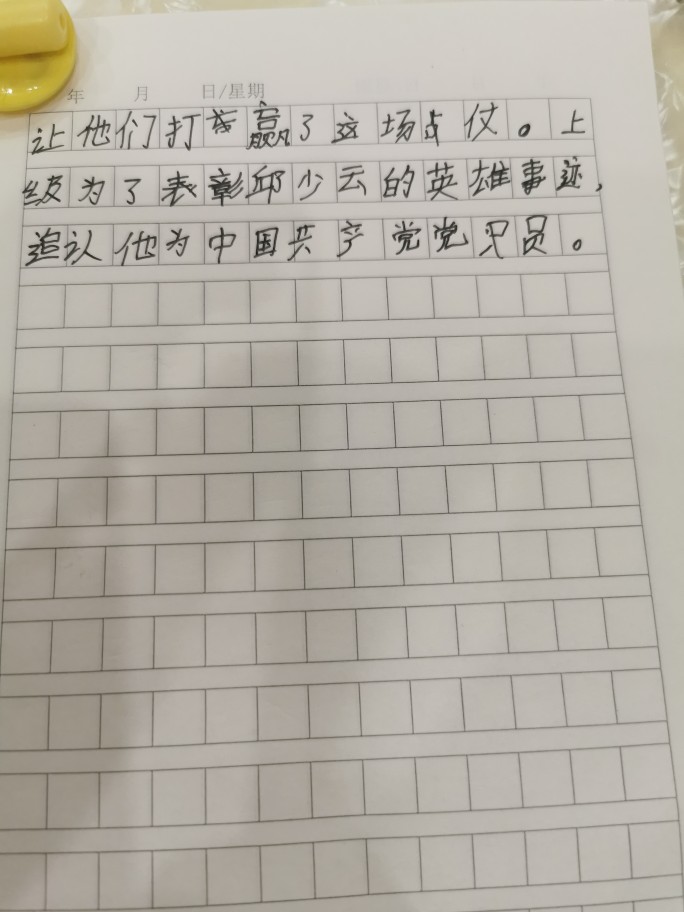 年 月 日/星期
让他们打赢了这场仗。上
级为了表彰邱少云的英雄事迹,
追认他为中国共产党党员。